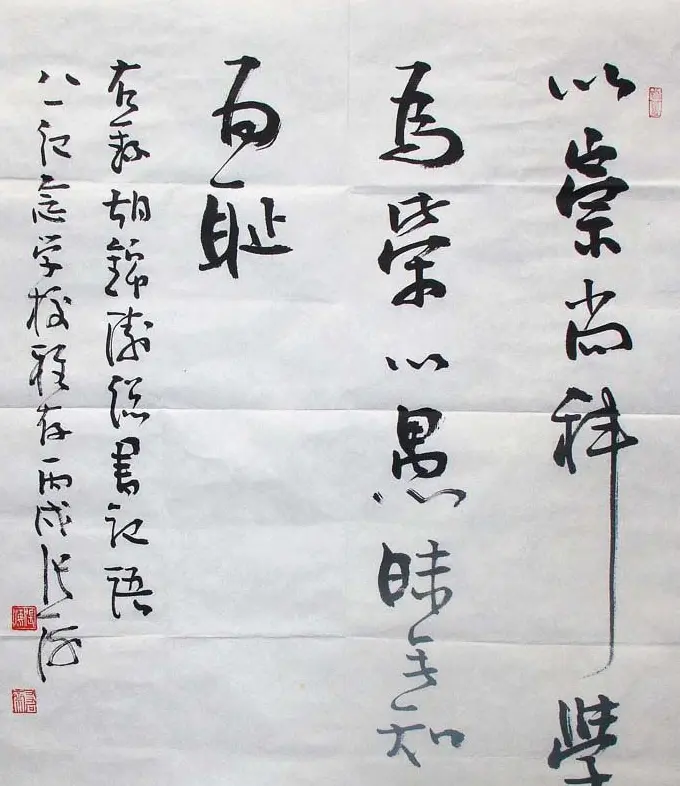 以崇尚科學
為榮以愚昧無知
為耻
右胡錦濤總書記語
八一記念学校雅存丙戌張海